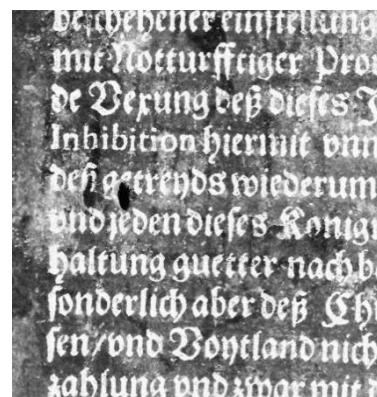 beschehener einstellung
mit Notturfftiger Pro
de Vexung deß dieses
Inhibition hiermit vnn
deß getreyds wiederum
vnd jeden dieses Konigr
haltung guetter nachb
sonderlich aber deß Ch
sen/vnd Voytland nich
zahlung vnd zwar mit